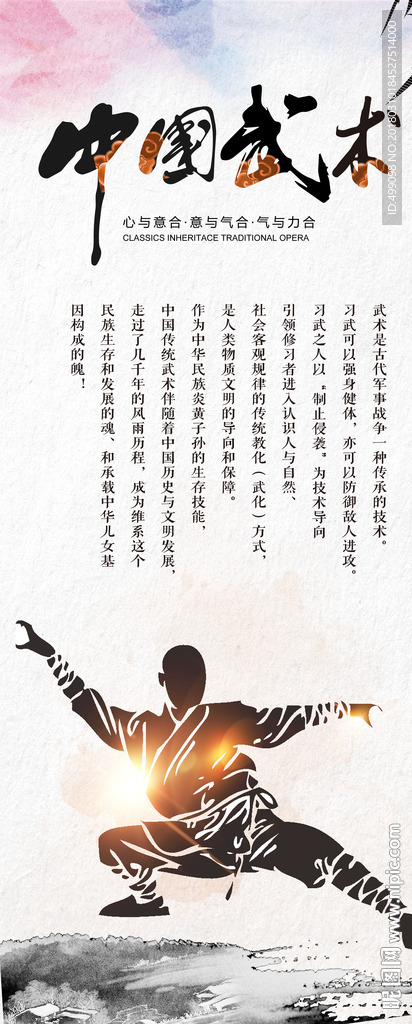 中国武术
心与意合·意与气合·气与力合
CLASSICS INHERITACE TRADITIONAL OPERA
武术是古代军事战争一种传承的技术。
习武可以强身健体，亦可以防御敌人进攻。
习武之人以“制止侵袭”为技术导向
引领修习者进入认识人与自然、
社会客观规律的传统教化（武化）方式，
是人类物质文明的导向和保障。
作为中华民族炎黄子孙的生存技能，
中国传统武术伴随着中国历史与文明发展，
走过了几千年的风雨历程，成为维系这个
民族生存和发展的魂、和承载中华儿女基
因构成的魄！
ID:499098 NO:20180319184527514000
昵图网 www.nipic.com